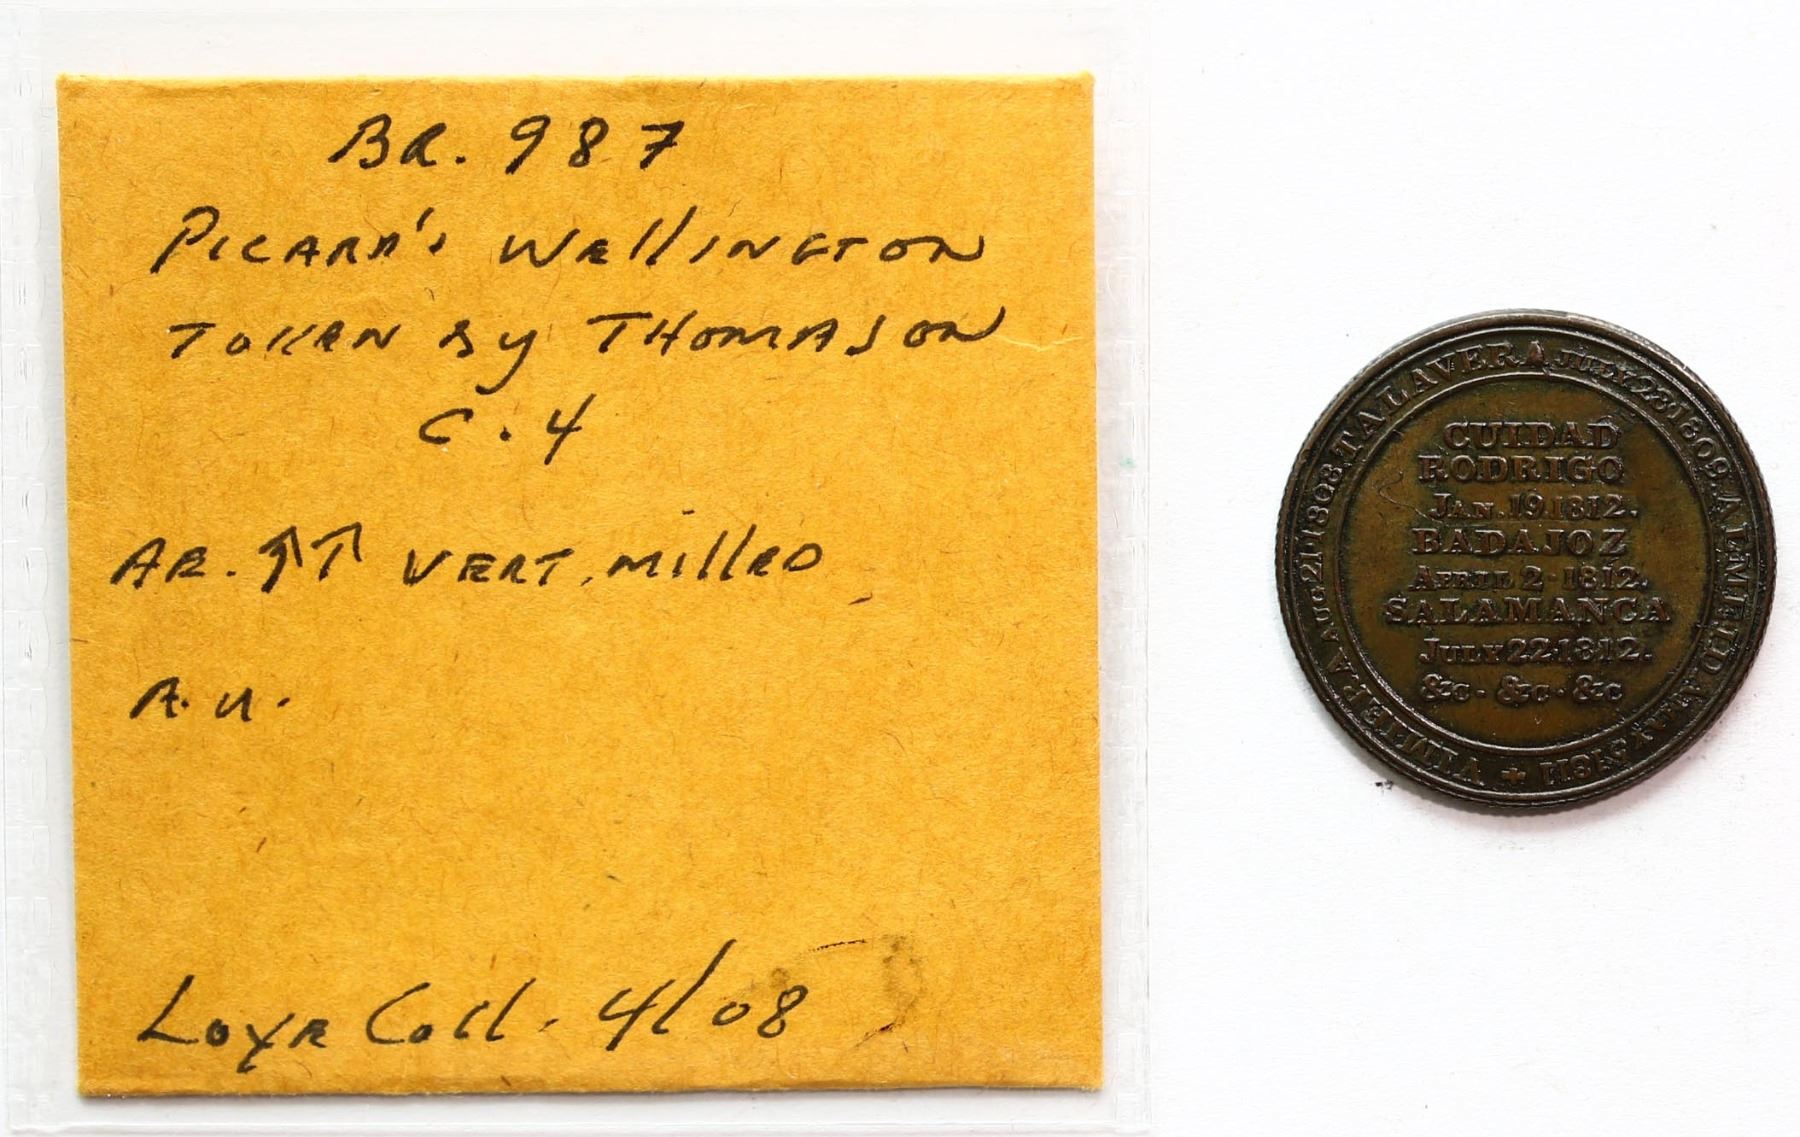 BR. 987
PICARD'S WellINGTON
TOKEN By THOMASON
C. 4
AE. ↑↑ VERT. MillED
A.U.
Coll. 4/08
VIMIERA AUG 21 1808. TALAVERA JULY 28 1809. ALMEIDA MAY 5 1811
CUIDAD
RODRIGO
JAN. 19 1812.
BADAJOZ
APRIL 2 · 1812.
SALAMANCA
JULY 22 1812.
&c · &c · &c